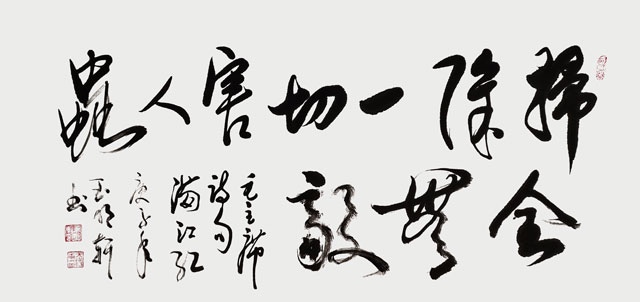 掃除一切害人蟲
全無敵
毛主席
詩句
滿江紅
庚子年
玉明軒
書